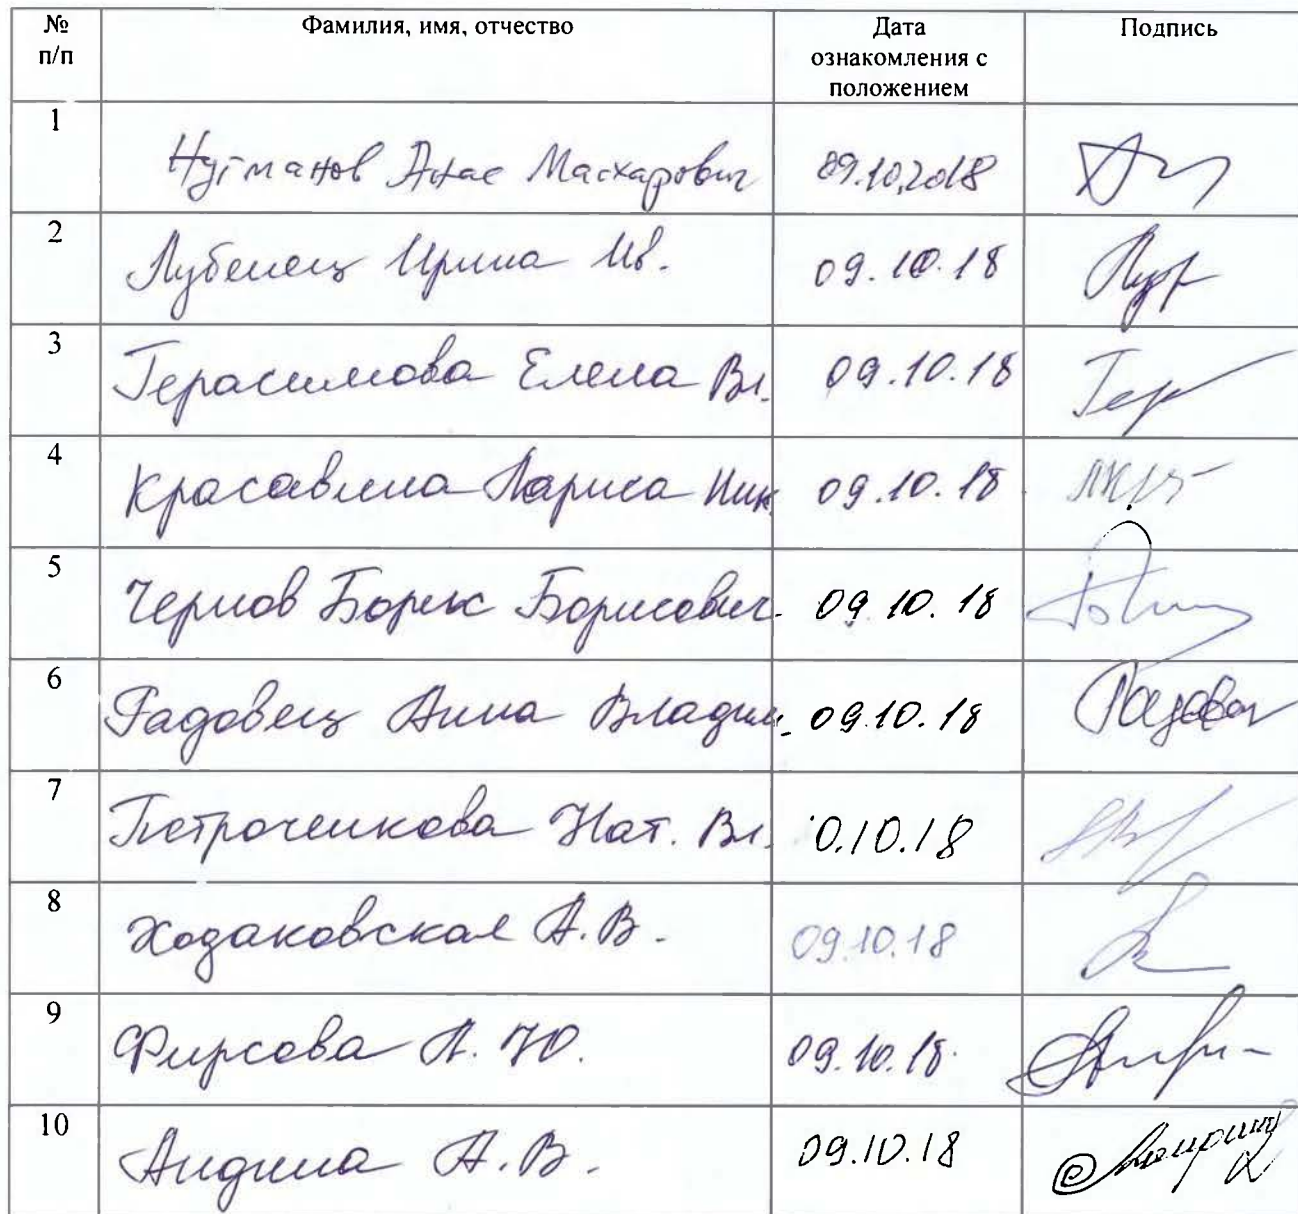 № п/п Фамилия, имя, отчество Дата ознакомления с положением Подпись
1 Нугманов Анас Масхарович 09.10.2018
2 Лубенец Ирина Ив. 09.10.18
3 Герасимова Елена Вл. 09.10.18
4 Красавина Лариса Ник. 09.10.18
5 Чернов Борис Борисович 09.10.18
6 Радовец Анна Владим. 09.10.18
7 Петроченкова Нат. Вл. 0.10.18
8 Ходаковская А.В. 09.10.18
9 Фирсова А.Ю. 09.10.18
10 Андина А.В. 09.10.18